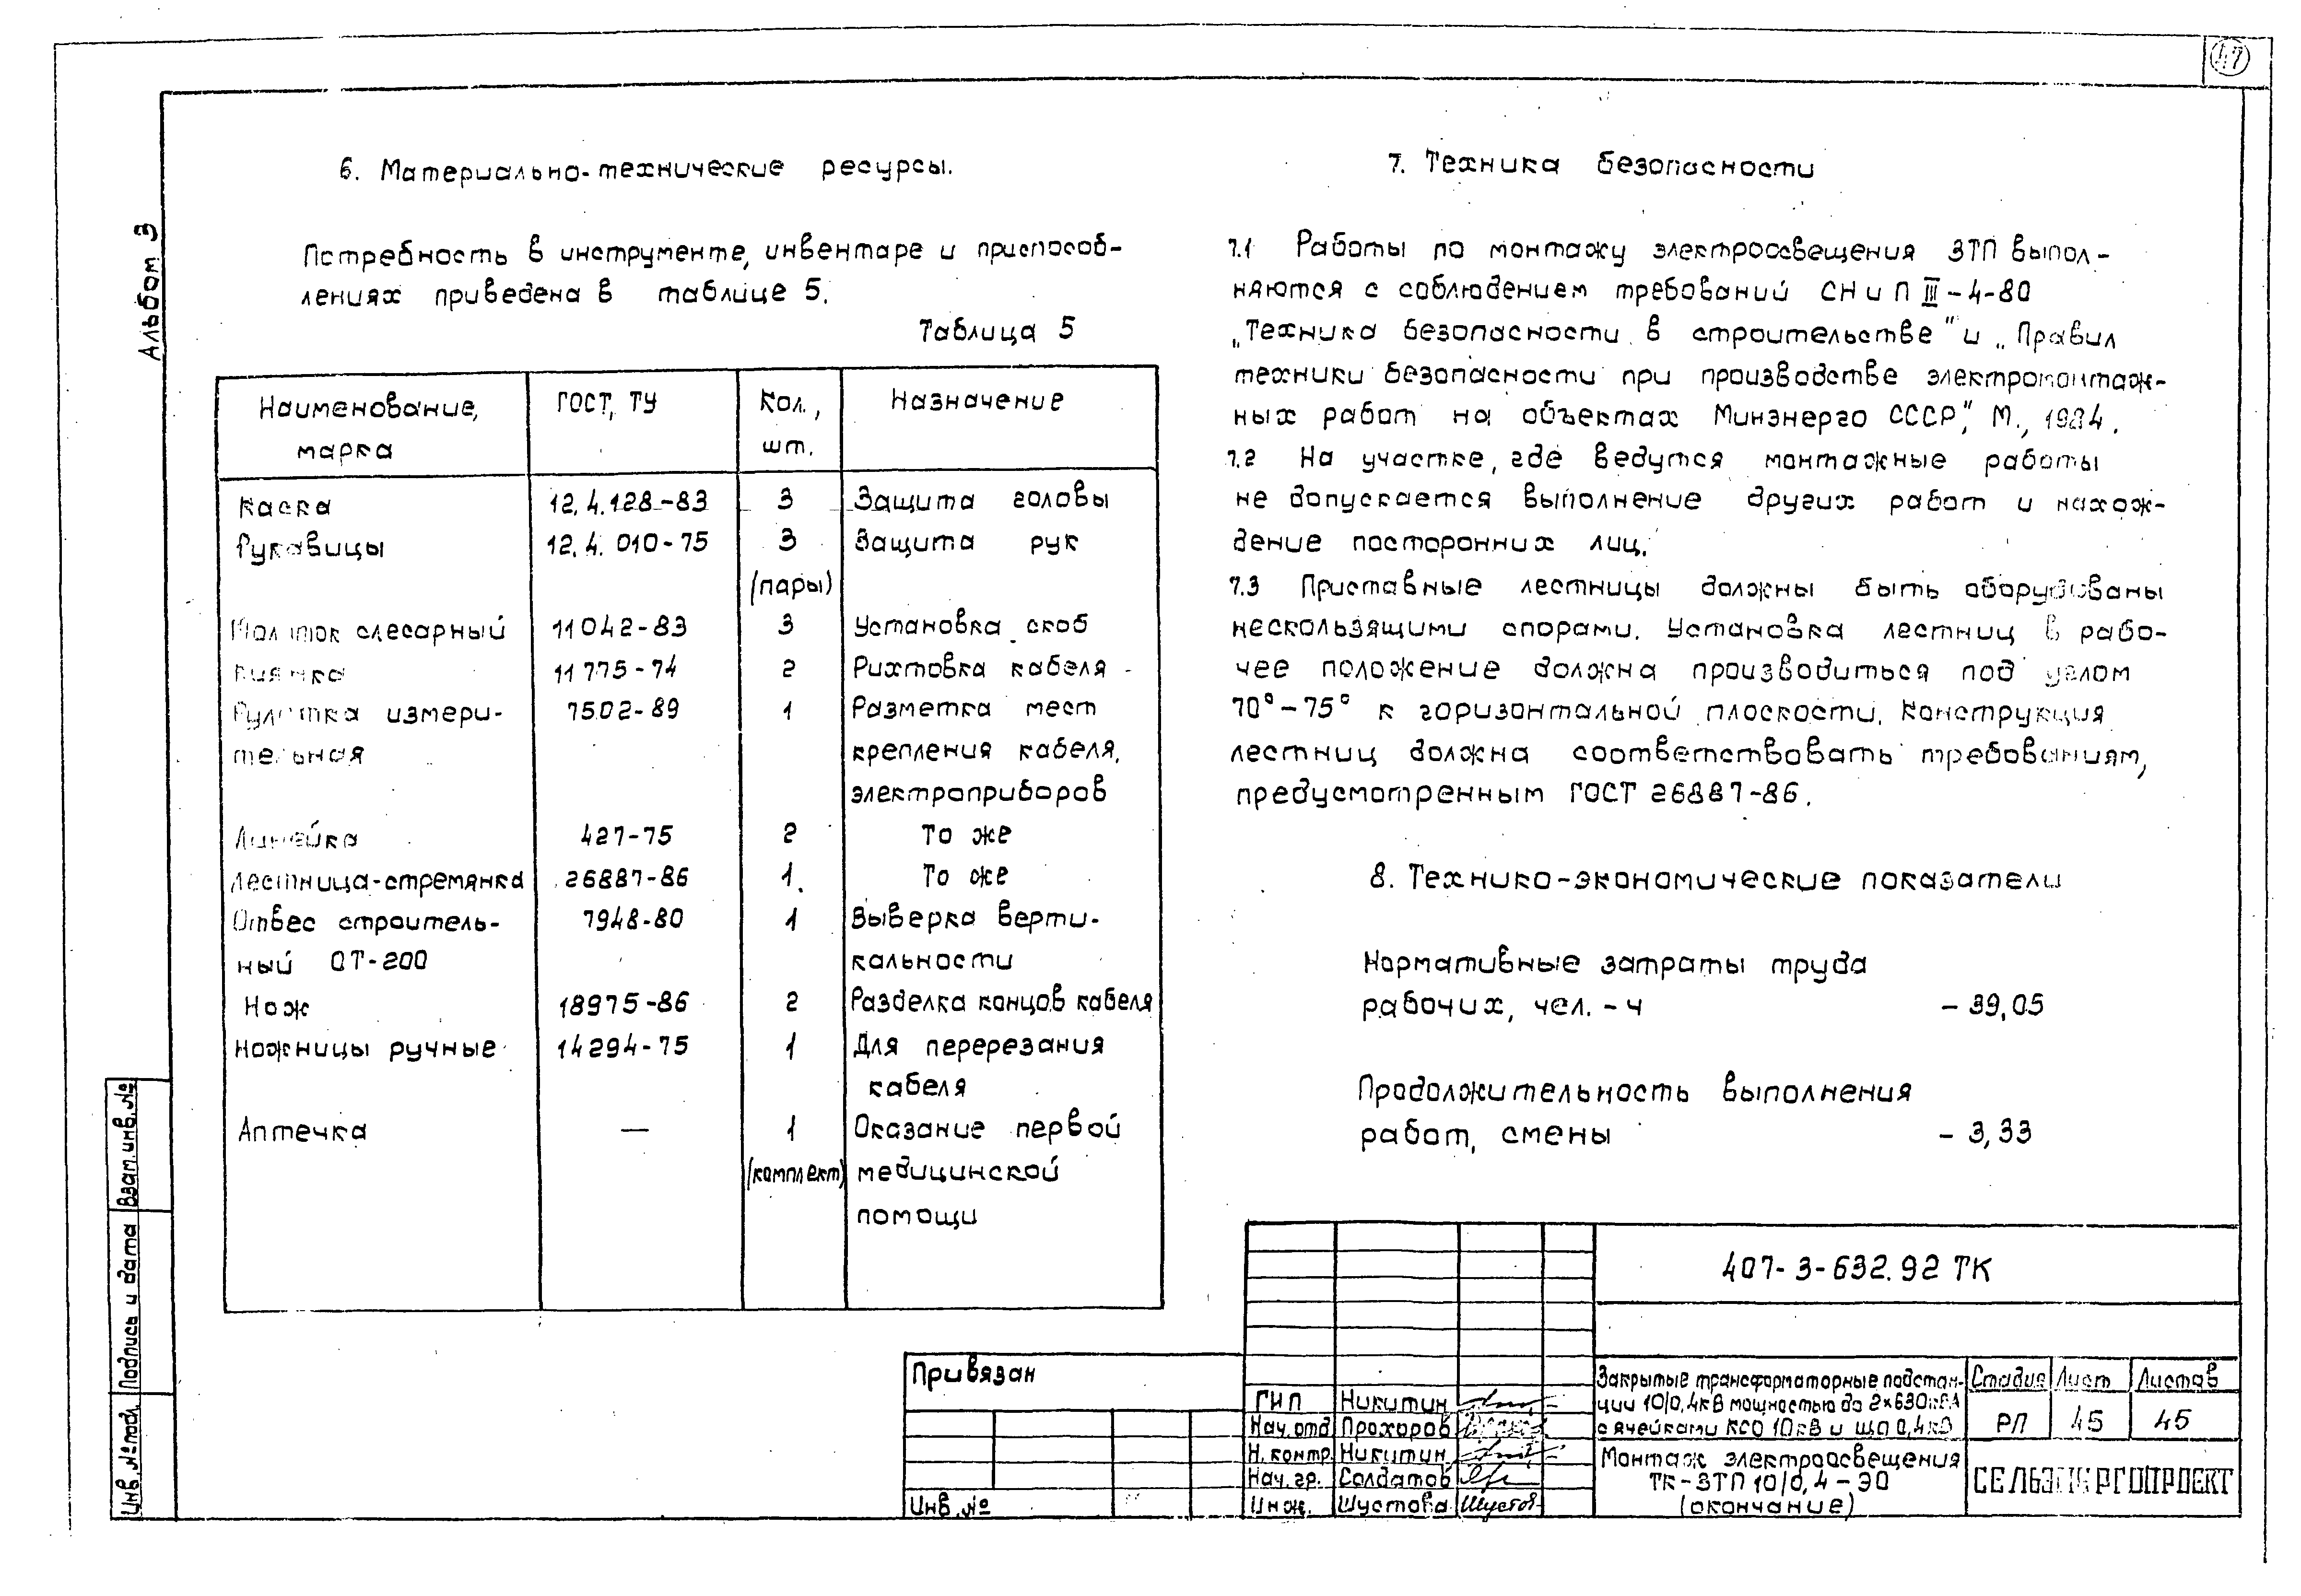 47
Альбом 3
6. Материально-технические ресурсы.
Потребность в инструменте, инвентаре и приспособ-
лениях приведена в таблице 5.
Таблица 5
Наименование, марка | ГОСТ, ТУ | Кол., шт. | Назначение
Каска 12.4.128-83 3 Защита головы
Рукавицы 12.4.010-75 3 Защита рук
(пары)
Молоток слесарный 11042-83 3 Установка скоб
Киянка 11775-74 2 Рихтовка кабеля
Рулетка измери- 7502-89 1 Разметка мест
тельная крепления кабеля,
электроприборов
Линейка 427-75 2 То же
Лестница-стремянка 26887-86 1 То же
Отвес строитель- 7948-80 1 Выверка верти-
ный ОТ-200 кальности
Нож 18975-86 2 Разделка концов кабеля
Ножницы ручные 14294-75 1 Для перерезания
кабеля
Аптечка — 1 Оказание первой
(комплект) медицинской
помощи
7. Техника безопасности
7.1 Работы по монтажу электроосвещения ЗТП выпол-
няются с соблюдением требований СНиП III-4-80
„Техника безопасности в строительстве" и „Правил
техники безопасности при производстве электромонтаж-
ных работ на объектах Минэнерго СССР", М., 1984.
7.2 На участке, где ведутся монтажные работы
не допускается выполнение других работ и нахож-
дение посторонних лиц.
7.3 Приставные лестницы должны быть оборудованы
нескользящими опорами. Установка лестниц в рабо-
чее положение должна производиться под углом
70°-75° к горизонтальной плоскости. Конструкция
лестниц должна соответствовать требованиям,
предусмотренным ГОСТ 26887-86.
8. Технико-экономические показатели
Нормативные затраты труда
рабочих, чел.-ч - 39,05
Продолжительность выполнения
работ, смены - 3,33
Инв. № подл. Подпись и дата Взам. инв. №
Привязан
Инв. №
ГИП Никитин
Нач. отд Прохоров
Н. контр. Никитин
Нач. гр. Солдатов
Инж. Шустова Шустов
407-3-632.92 ТК
Закрытые трансформаторные подстан-
ции 10/0,4кВ мощностью до 2×630кВА
с ячейками КСО 10кВ и ЩО 0,4кВ
Стадия Лист Листов
РП 45 45
Монтаж электроосвещения
ТК-ЗТП 10/0,4-ЭО
(окончание)
СЕЛЬЭНЕРГОПРОЕКТ